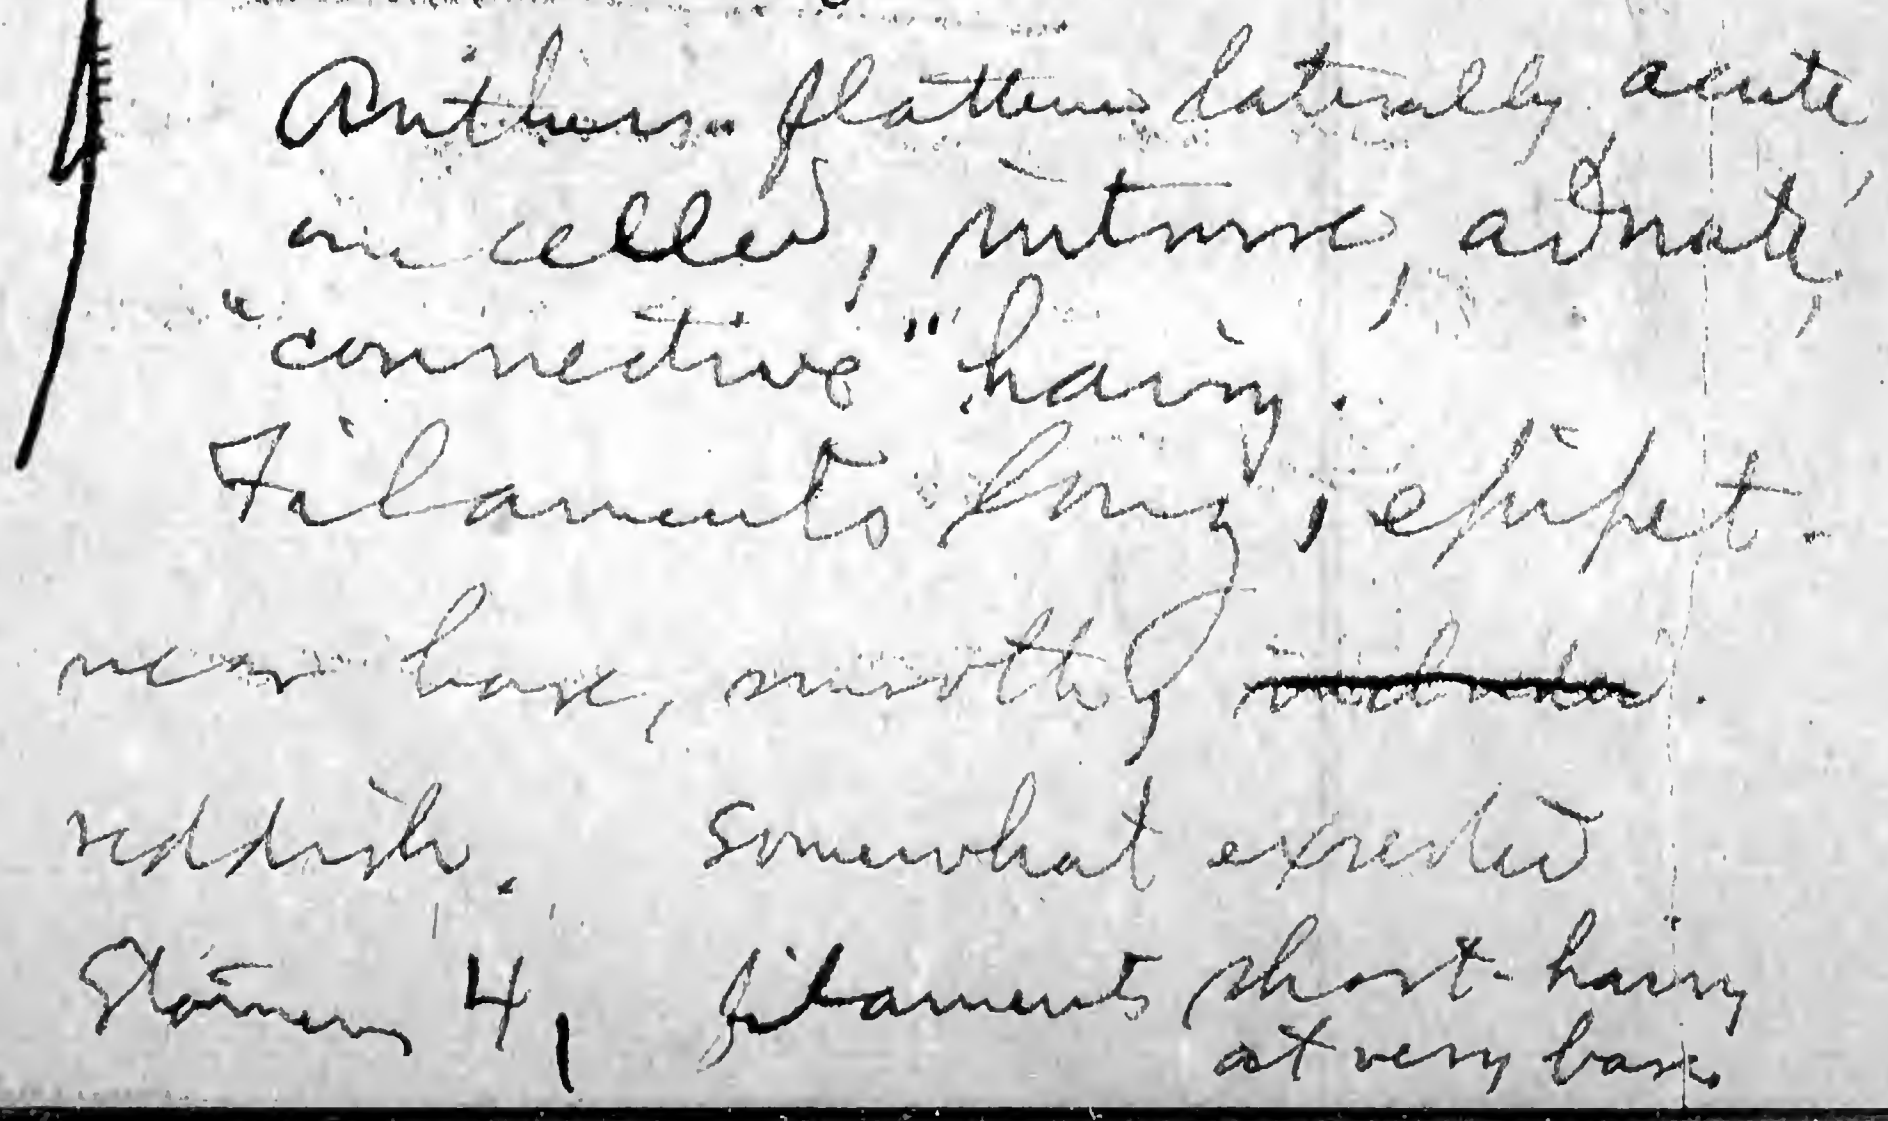 Anthers flattened laterally acute
one celled, introrse, adnate,
"connective" hairy.
Filaments long, epipet.
near base, smooth
reddish. Somewhat exserted
Stamens 4, filaments short-hairy
at very base